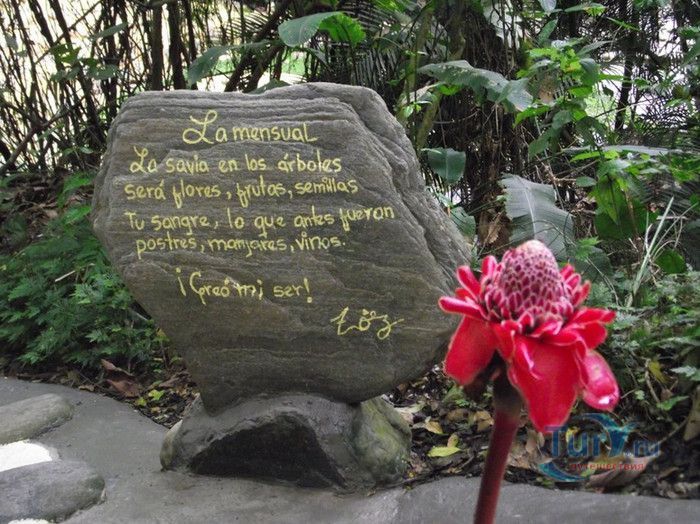 La mensual
La savia en los árboles
será flores, frutas, semillas
Tu sangre, lo que antes fueran
postres, manjares, vinos.
¡Creó mi ser!
Zöz
Tury.ru
путешествия